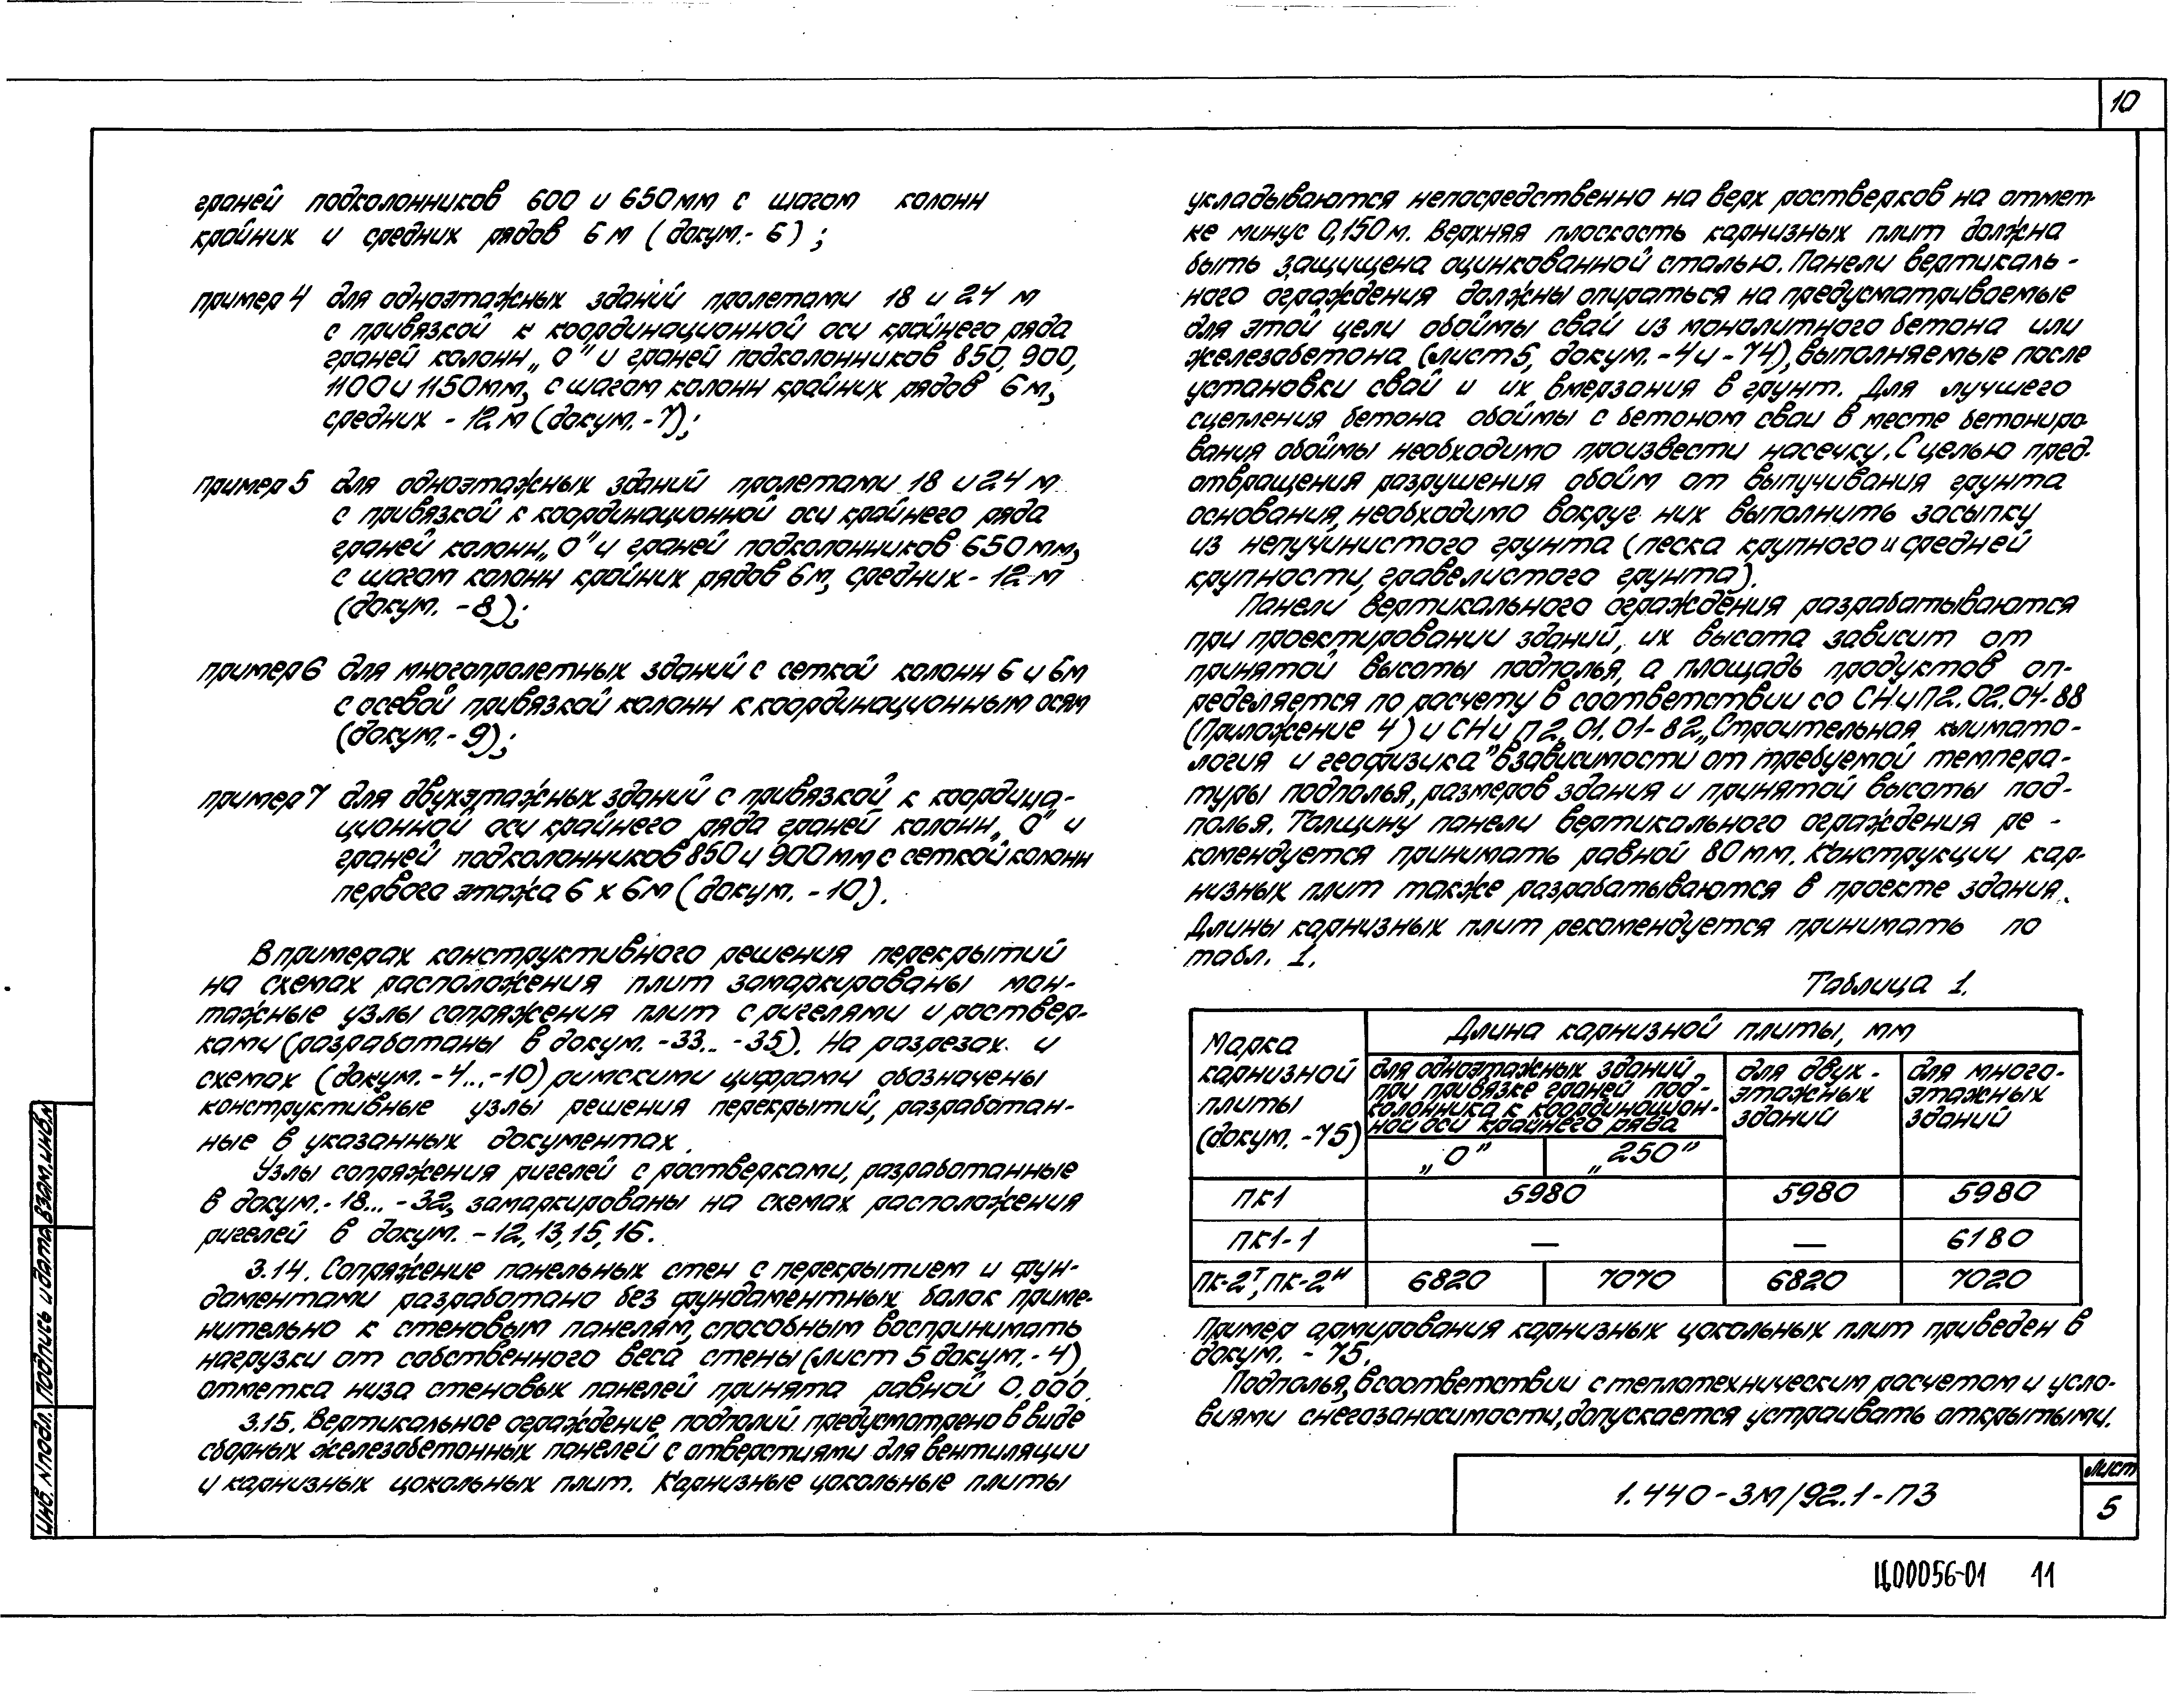 10
граней подколонников 600 и 650мм с шагом колонн
крайних и средних рядов 6м (докум.- 6) ;
пример 4 для одноэтажных зданий пролетами 18 и 24 м
с привязкой к координационной оси крайнего ряда
граней колонн „0" и граней подколонников 850, 900,
1100 и 1150мм, с шагом колонн крайних рядов 6м,
средних - 12м (докум. -7);
пример 5 для одноэтажных зданий пролетами 18 и 24 м
с привязкой к координационной оси крайнего ряда
граней колонн „0" и граней подколонников 650мм,
с шагом колонн крайних рядов 6м, средних - 12м
(докум. -8);
пример 6 для многопролетных зданий с сеткой колонн 6 и 6м
с осевой привязкой колонн к координационным осям
(докум.- 9);
пример 7 для двухэтажных зданий с привязкой к координа-
ционной оси крайнего ряда граней колонн „0" и
граней подколонников 850 и 900мм с сеткой колонн
первого этажа 6 х 6м (докум. -10).
В примерах конструктивного решения перекрытий
на схемах расположения плит замаркированы мон-
тажные узлы сопряжения плит с ригелями и роствер-
ками (разработаны в докум. -33... -35). На разрезах и
схемах (докум. -4...-10) римскими цифрами обозначены
конструктивные узлы решения перекрытий, разработан-
ные в указанных документах.
Узлы сопряжения ригелей с ростверками, разработанные
в докум.- 18... -32, замаркированы на схемах расположения
ригелей в докум. -12, 13, 15, 16.
3.14. Сопряжение панельных стен с перекрытием и фун-
даментами разработано без фундаментных балок приме-
нительно к стеновым панелям, способным воспринимать
нагрузки от собственного веса стены (лист 5 докум.- 4),
отметка низа стеновых панелей принята равной 0.000.
3.15. Вертикальное ограждение подполий предусмотрено в виде
сборных железобетонных панелей с отверстиями для вентиляции
и карнизных цокольных плит. Карнизные цокольные плиты
укладываются непосредственно на верх ростверков на отмет-
ке минус 0,150м. Верхняя плоскость карнизных плит должна
быть защищена оцинкованной сталью. Панели вертикаль-
ного ограждения должны опираться на предусматриваемые
для этой цели обоймы свай из монолитного бетона или
железобетона (лист 5, докум. -4 и -74), выполняемые после
установки свай и их вмерзания в грунт. Для лучшего
сцепления бетона обоймы с бетоном сваи в месте бетониро-
вания обоймы необходимо произвести насечку. С целью пред-
отвращения разрушения обойм от выпучивания грунта
основания, необходимо вокруг них выполнить засыпку
из непучинистого грунта (песка крупного и средней
крупности, гравелистого грунта).
Панели вертикального ограждения разрабатываются
при проектировании зданий, их высота зависит от
принятой высоты подполья, а площадь продуктов оп-
ределяется по расчету в соответствии со СНиП2.02.04-88
(Приложение 4) и СНиП 2.01.01-82 „Строительная климато-
логия и геофизика" в зависимости от требуемой темпера-
туры подполья, размеров здания и принятой высоты под-
полья. Толщину панели вертикального ограждения ре -
комендуется принимать равной 80мм. Конструкции кар-
низных плит также разрабатываются в проекте здания.
Длины карнизных плит рекомендуется принимать по
табл. 1.
Таблица 1.
Марка
карнизной
плиты
(докум. -75)
Длина карнизной плиты, мм
для одноэтажных зданий
при привязке граней под-
колонника к координацион-
ной оси крайнего ряда
для двух-
этажных
зданий
для много-
этажных
зданий
„0" „250"
ПК1 5980 5980 5980
ПК1-1 — — 6180
ПК-2т, ПК-2н 6820 7070 6820 7020
Пример армирования карнизных цокольных плит приведен в
докум. - 75.
Подполья, в соответствии с теплотехническим расчетом и усло-
виями снегозаносимости, допускается устраивать открытыми.
Инв. N подл. Подпись и дата Взам. инв. N
1.440-3М/92.1-ПЗ
Лист
5
Ц00056-01 11